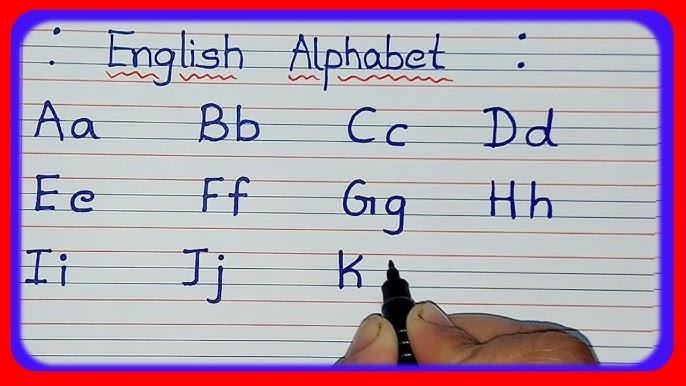 : English Alphabet :
Aa Bb Cc Dd
Ee Ff Gg Hh
Ii Jj K